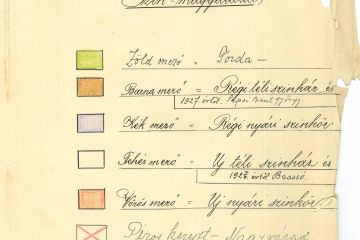 Szin-magyarázat
Zöld mező = Torda-
Barna mező = Régi téli szinház és
1927. évtől. Szent György.
Kék mező = Régi nyári szinkör
Fehér mező = Uj téli szinház és
1927. évtől Brassó.
Vörös mező = Uj nyári szinkör
Piros kereszt - Nagyvárad